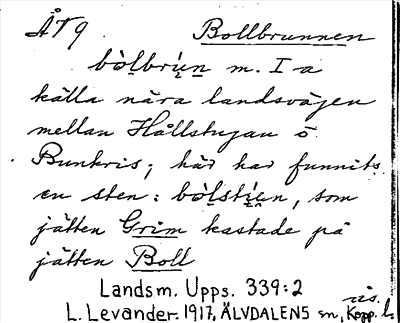 ÅT9 Bollbrunnen
bòlbrún m. I a
källa nära landsvägen
mellan Hållstugan o
Bunkris; här har funnits
en sten: bòlstíen, som
jätten Grim kastade på
jätten Boll
Landsm. Upps. 339:2
L. Levander. 1917, ÄLVDALENS sn, Kopp. l.